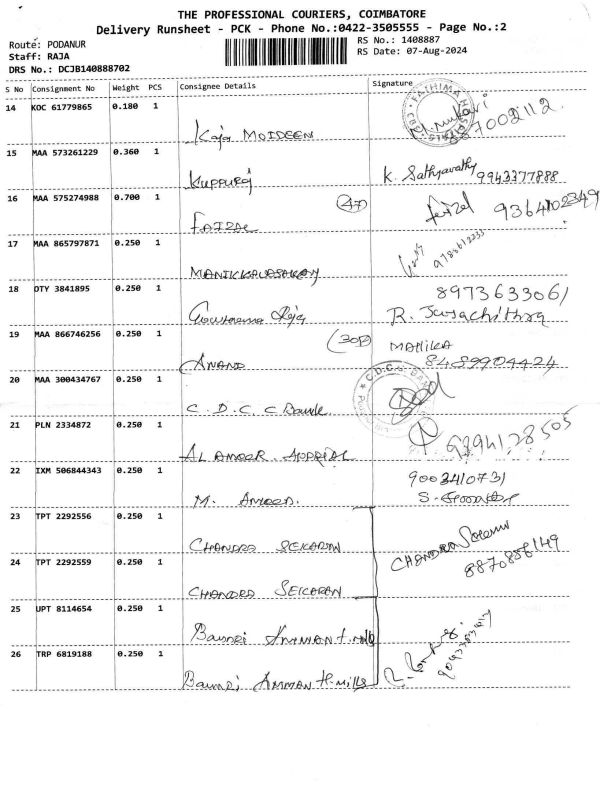 THE PROFESSIONAL COURIERS, COIMBATORE
Delivery Runsheet - PCK - Phone No.:0422-3505555 - Page No.:2
Route: PODANUR
RS No.: 1408887
Staff: RAJA
RS Date: 07-Aug-2024
DRS No.: DCJB140888702
S No Consignment No Weight PCS Consignee Details Signature
14 KOC 61779865 0.180 1 Kaja MOIDEEN
FATHIMA HOSPITALS
87002112
15 MAA 573261229 0.360 1 Kuppuraj K. Sathyavathy 9943377888
16 MAA 575274988 0.700 1 FAIZAL 47 feizel 9364102349
17 MAA 865797871 0.250 1
18 DTY 3841895 0.250 1 Raja 8973633061
R.
19 MAA 866746256 0.250 1 ANAND MALLIKA
8489904424
20 MAA 300434767 0.250 1 C. D. C. C Bank
21 PLN 2334872 0.250 1 AL AMEER
22 IXM 506844343 0.250 1 M. AMEER. 9003410731
S.
23 TPT 2292556 0.250 1 CHANDRA SEKARAN
24 TPT 2292559 0.250 1 CHANDRA SEKARAN CHANDRA
8870886149
25 UPT 8114654 0.250 1 Bannri AMMAN t. mills
26 TRP 6819188 0.250 1 Bannri AMMAN t. mills